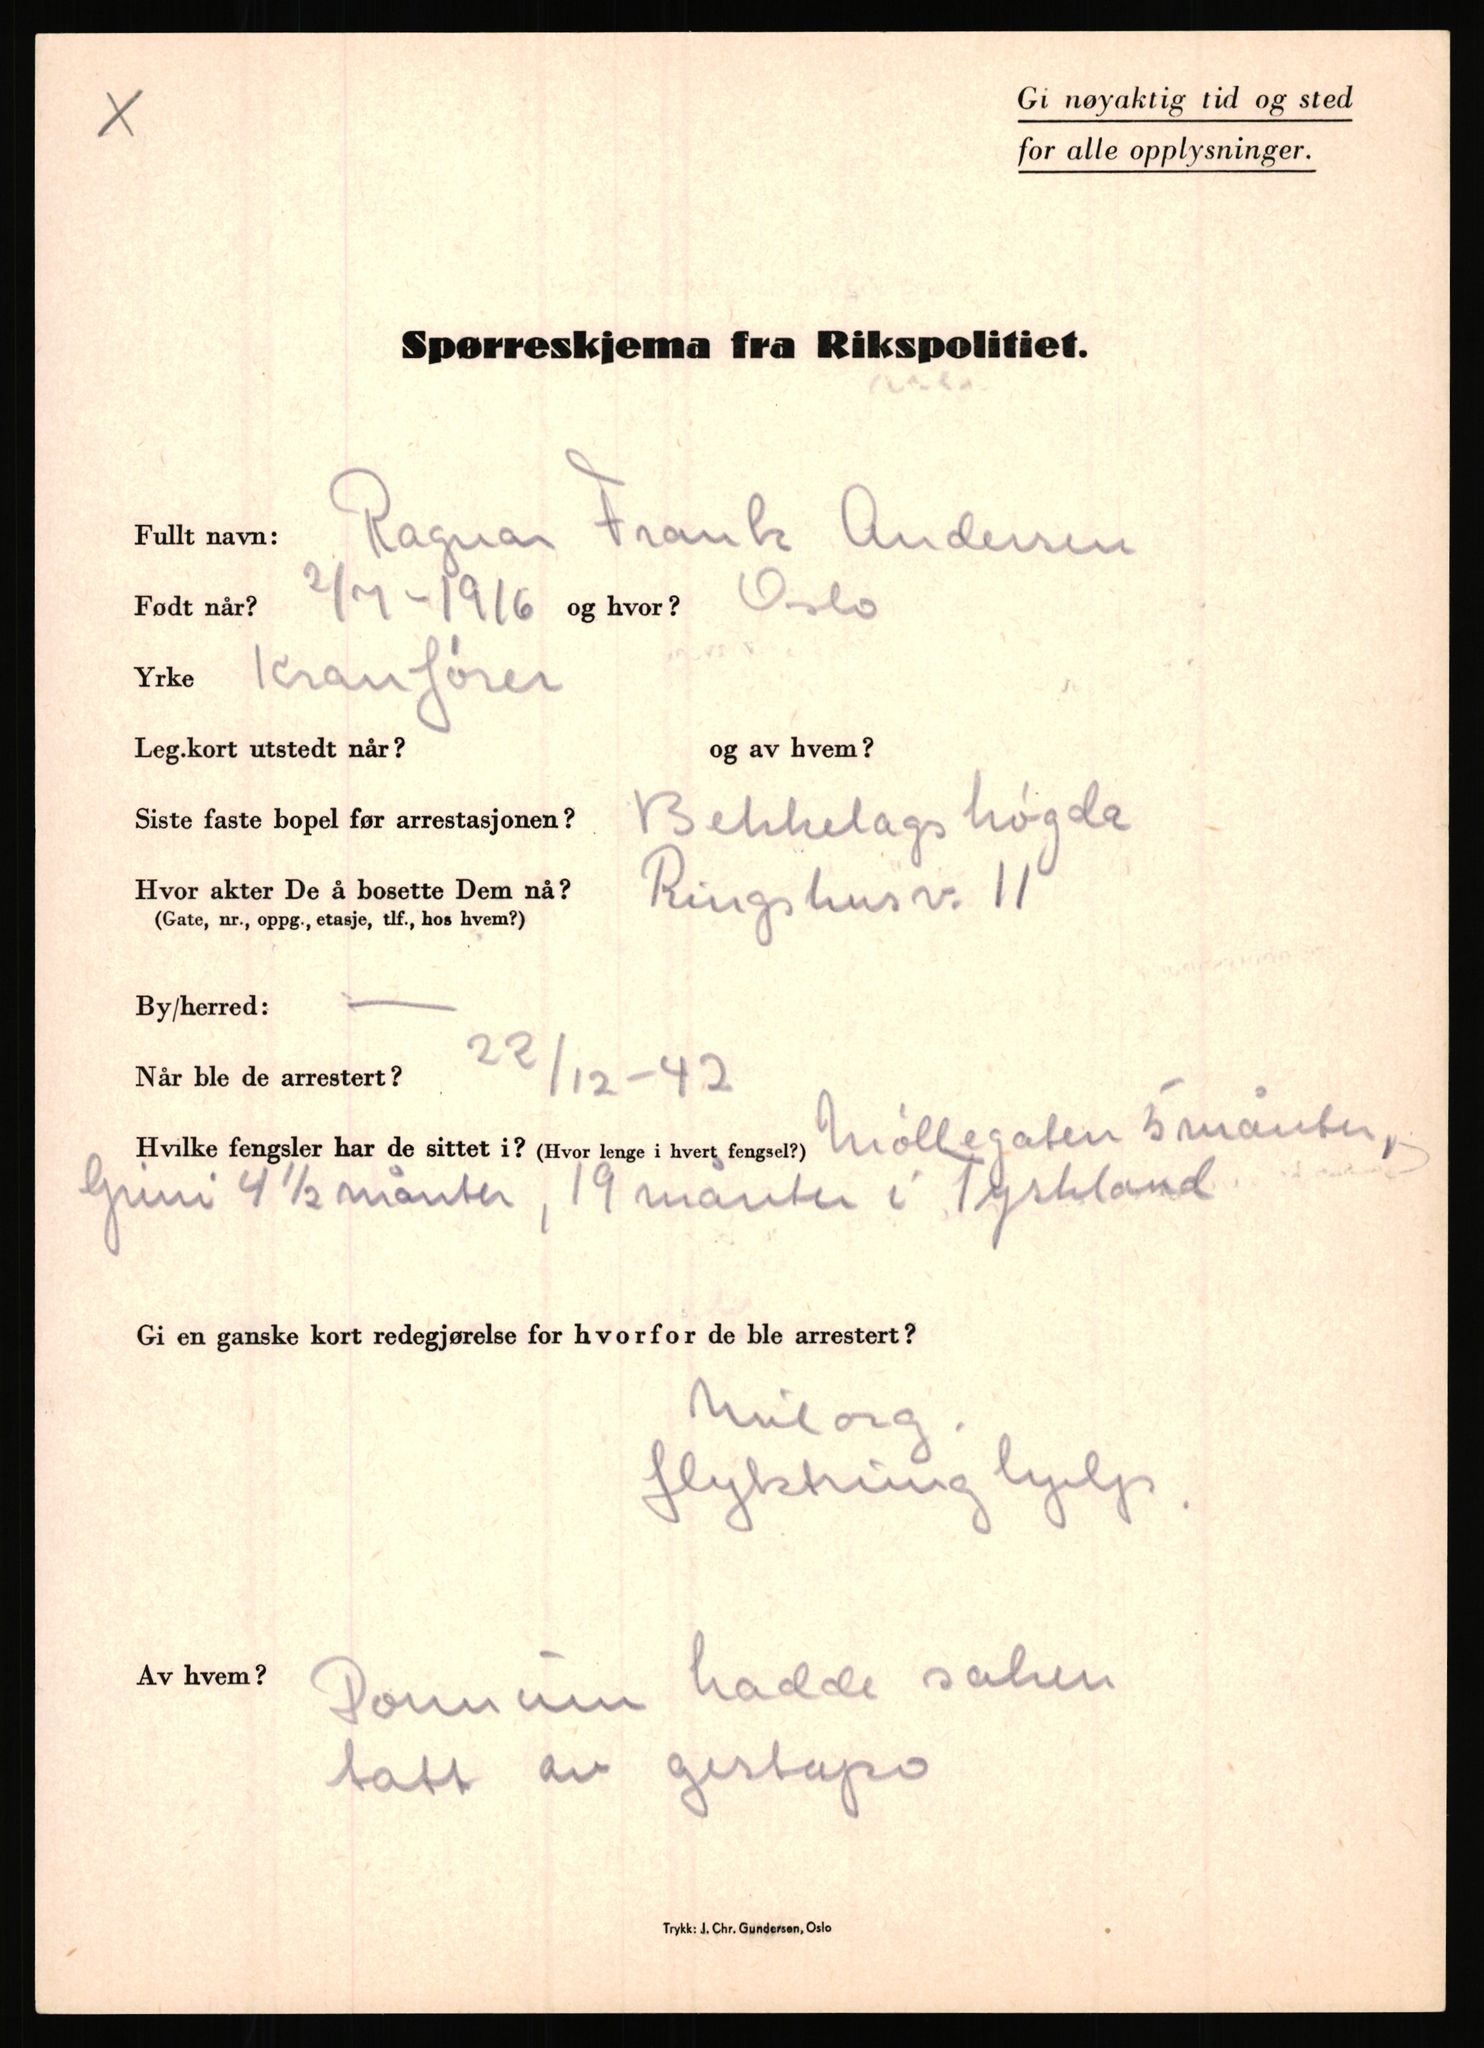 X
Gi nøyaktig tid og sted
for alle opplysninger.
Spørreskjema fra Rikspolitiet.
Fullt navn: Ragnar Frank Andersen
Født når? 2/7-1916 og hvor? Oslo
Yrke Kranfører
Leg.kort utstedt når? og av hvem?
Siste faste bopel før arrestasjonen? Bekkelagshøgda
Hvor akter De å bosette Dem nå? Ringshusv. 11
(Gate, nr., oppg., etasje, tlf., hos hvem?)
By/herred: —
Når ble de arrestert? 22/12-42
Hvilke fengsler har de sittet i? (Hvor lenge i hvert fengsel?) Møllegaten 5 månter,
Grini 4 1/2 månter, 19 månter i Tyskland
Gi en ganske kort redegjørelse for hvorfor de ble arrestert?
Mil org.
flyktninghjelp.
Av hvem? hadde saken
tatt av gestapo
Trykk: J. Chr. Gundersen, Oslo